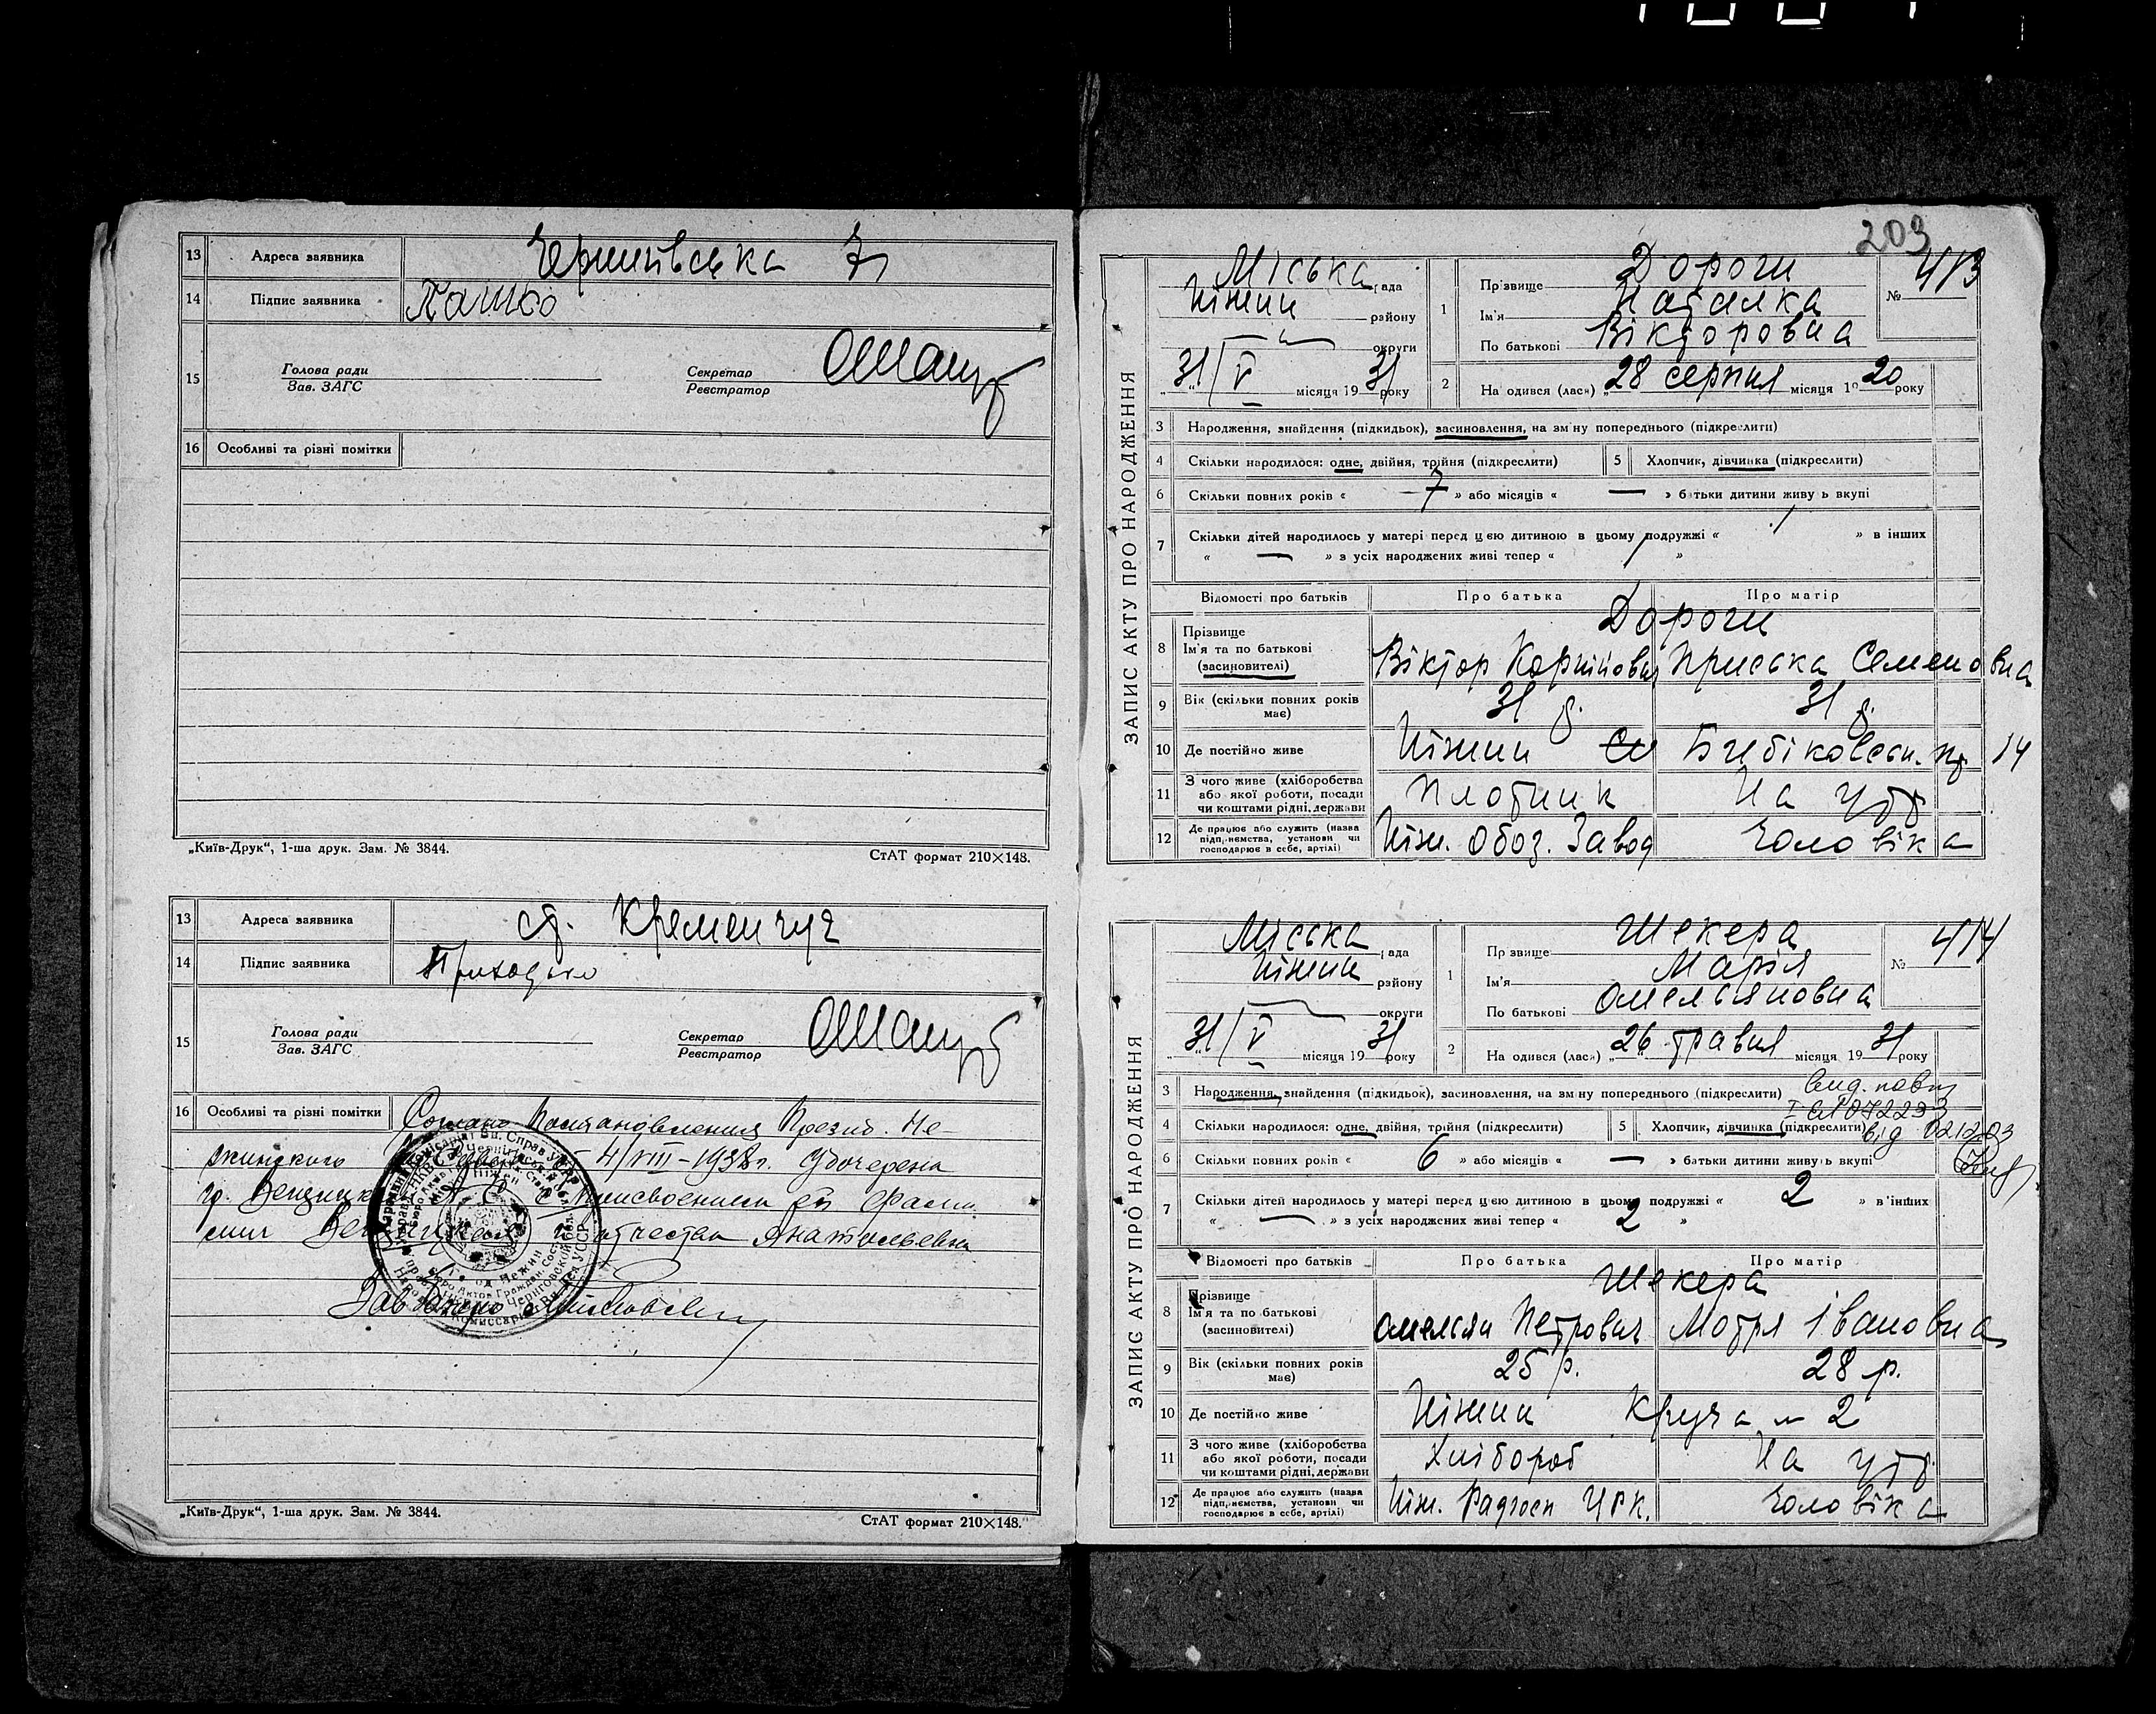 13 Адреса заявника Чернигівська 7
14 Підпис заявника Пашко
15 Голова ради
Зав. ЗАГС
Секретар
Реєстратор
16 Особливі та різні помітки
„Київ-Друк“, 1-ша друк. Зам. № 3844.
СтАТ формат 210×148.
13 Адреса заявника ст. Кременчуг
14 Підпис заявника Приходько
15 Голова ради
Зав. ЗАГС
Секретар
Реєстратор
16 Особливі та різні помітки Постановления Презид. Не
жинского 4/VIII-1938г. Удочерена
гр. присвоением ей фами
лии отчества Анатольевна
„Київ-Друк“, 1-ша друк. Зам. № 3844.
СтАТ формат 210×148.
203
ЗАПИС АКТУ ПРО НАРОДЖЕННЯ
Міська рада
Ніжин району
округи
31/V місяця 1931 року
1 Прізвище Дороги
Ім'я Наталка
По батькові Вікторовна
№ 413
2 Народився (лася) „28 серпня місяця 1920 року
3 Народження, знайдення (підкидьок), засиновлення, на зміну попереднього (підкреслити)
4 Скільки народилося: одне, двійня, трійня (підкреслити)
5 Хлопчик, дівчинка (підкреслити)
6 Скільки повних років « 7 » або місяців « — » батьки дитини живуть вкупі
7 Скільки дітей народилось у матері перед цією дитиною в цьому подружжі « 1 » в інших
« — » з усіх народжених живі тепер « 1 »
Відомості про батьків Про батька Про матір
Дороги
8 Прізвище
Ім'я та по батькові
(засиновителі)
Віктор Корнійович Приська Семеновна
9 Вік (скільки повних років має) 31 р. 31 р.
10 Де постійно живе Ніжин 14
11 З чого живе (хліборобства
або якої роботи, посади
чи коштами рідні, держави
Плотник На утр
12 Де працює або служить (назва
підприємства, установи чи
господарює в себе, артілі)
Ніж. Обоз. Завод Чоловіка
ЗАПИС АКТУ ПРО НАРОДЖЕННЯ
Міська рада
Ніжин району
округи
31/V місяця 1931 року
1 Прізвище Шекера
Ім'я Марія
По батькові Омеляновна
№ 414
2 Народився (лася) „26 травня місяця 1931 року
3 Народження, знайдення (підкидьок), засиновлення, на зміну попереднього (підкреслити)
Вид. повт
4 Скільки народилося: одне, двійня, трійня (підкреслити)
5 Хлопчик, дівчинка (підкреслити)
від 021203
6 Скільки повних років « 6 » або місяців « — » батьки дитини живуть вкупі
7 Скільки дітей народилось у матері перед цією дитиною в цьому подружжі « 2 » в інших
« — » з усіх народжених живі тепер « 2 »
Відомості про батьків Про батька Про матір
Шекера
8 Прізвище
Ім'я та по батькові
(засиновителі)
Омелян Петрович Мотря Івановна
9 Вік (скільки повних років має) 25 р. 28 р.
10 Де постійно живе Ніжин Круча № 2
11 З чого живе (хліборобства
або якої роботи, посади
чи коштами рідні, держави
Хлібороб На утр.
12 Де працює або служить (назва
підприємства, установи чи
господарює в себе, артілі)
Ніж. Радгосп ЦРК. Чоловіка